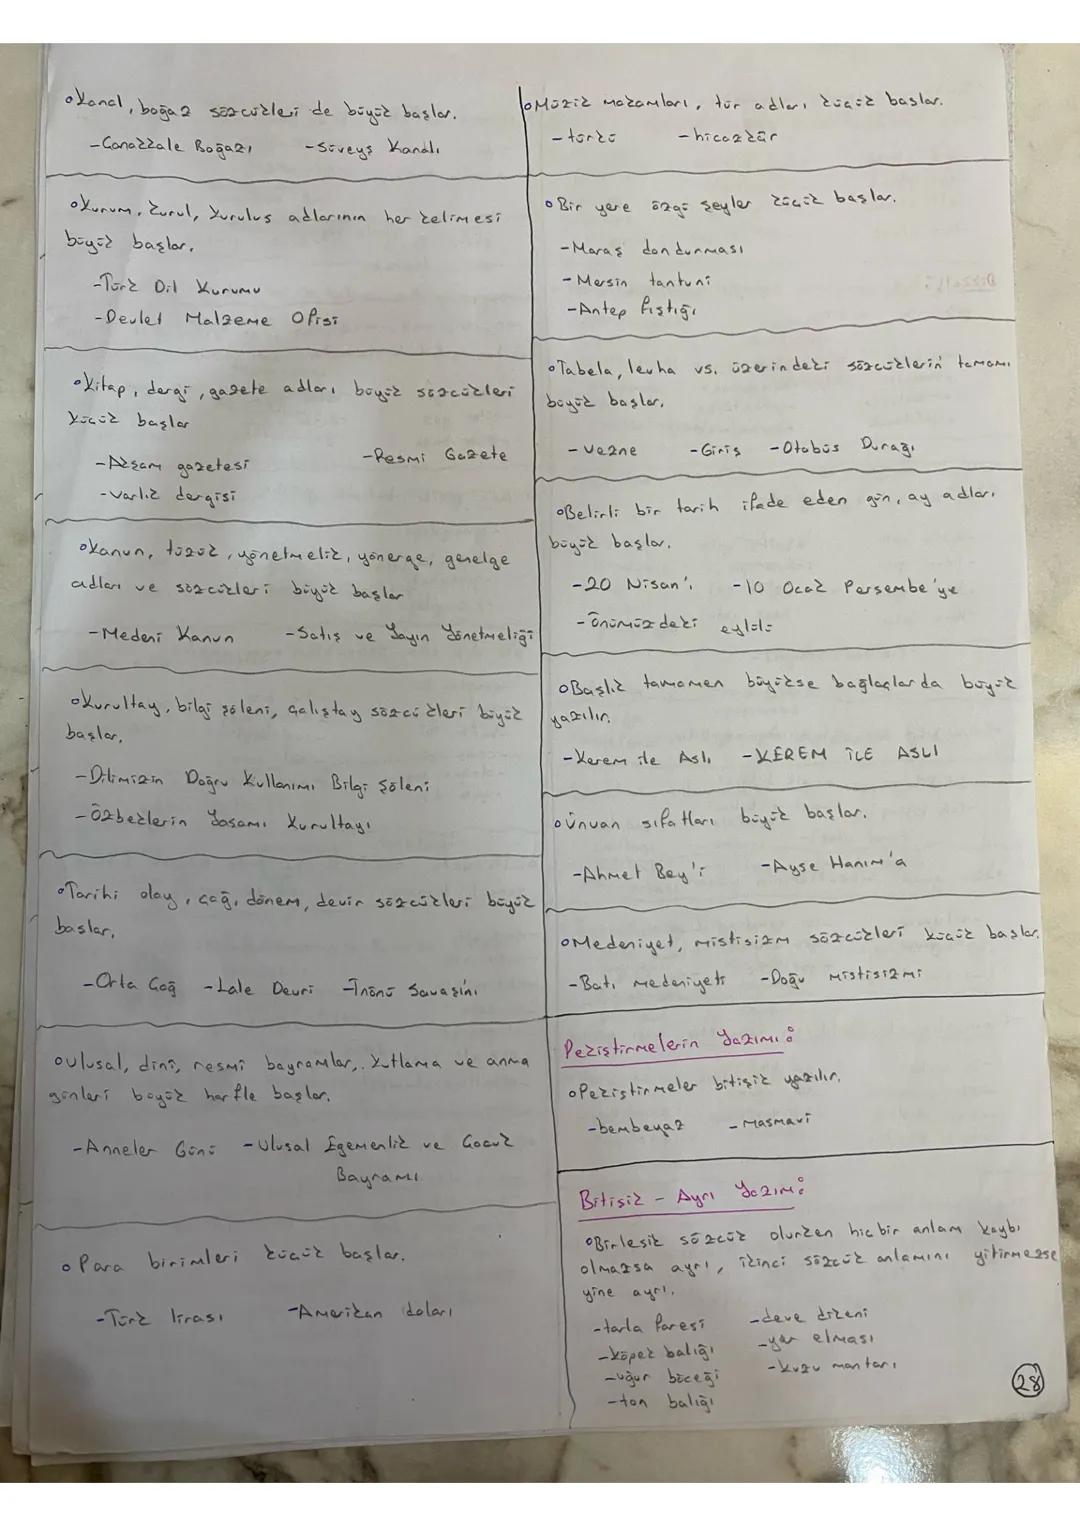 Kanal, boğaz sözcükleri de büyük başlar.
-Çanakkale Boğazı -Süveyş Kanalı
Kurum, kurul, kuruluş adlarının her kelimesi
büyük başlar.
-Türk Dil Kurumu
-Devlet Malzeme Ofisi
Kitap, dergi, gazete adları büyük sözcükleri
küçük başlar
-Akşam gazetesi -Resmi Gazete
-Varlık dergisi
Kanun, tüzük, yönetmelik, yönerge, genelge
adları ve sözcükleri büyük başlar
-Medeni Kanun -Satış ve Yayın Yönetmeliği
Kurultay, bilgi şöleni, çalıştay sözcükleri büyük
başlar.
-Dilimizin Doğru Kullanımı Bilgi Şöleni
-Özbeklerin Yaşamı Kurultayı
Tarihi olay, çağ, dönem, devir sözcükleri büyük
başlar.
-Orta Çağ -Lale Devri -İnönü Savaşını
Ulusal, dinî, resmî bayramlar, kutlama ve anma
günleri büyük harfle başlar.
-Anneler Günü -Ulusal Egemenlik ve Çocuk
Bayramı
Para birimleri küçük başlar.
-Türk lirası -Amerikan doları
Müzik makamları, tür adları küçük başlar.
-türkü -hicazkâr
Bir yere özgü şeyler küçük başlar.
-Maraş dondurması
-Mersin tantuni
-Antep fıstığı
Tabela, levha vs. üzerindeki sözcüklerin tamamı
büyük başlar.
-Vezne -Giriş -Otobüs Durağı
Belirli bir tarih ifade eden gün, ay adları
büyük başlar.
-20 Nisan'ı -10 Ocak Perşembe'ye
-Önümüzdeki eylülü
Başlık tamamen büyükse bağlaçlar da büyük
yazılır.
-Kerem ile Aslı -KEREM İLE ASLI
Ünvan sıfatları büyük başlar.
-Ahmet Bey'i -Ayşe Hanım'a
Medeniyet, mistisizm sözcükleri küçük başlar.
-Batı medeniyeti -Doğu mistisizmi
Pekiştirmelerin Yazımı:
Pekiştirmeler bitişik yazılır.
-bembeyaz -masmavi
Bitişik - Ayrı Yazım:
Birleşik sözcük olurken hiçbir anlam kaybı
olmazsa ayrı, ikinci sözcük anlamını yitirmezse
yine ayrı.
-tarla faresi -deve dikeni
-köpek balığı -yer elması
-uğur böceği -kuzu mantarı
-ton balığı
28